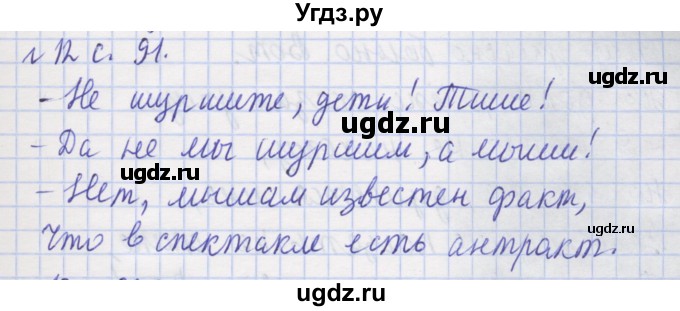 Угдз.ру
г 12 с. 91.
- Не шуршите, дети! Тише!
ugdz.ru ugdz.ru
- Да не мы шуршим, а мыши!
ugdz.ru
- Нет, мышам известен факт,
ugdz.ru
Что в спектакле есть антракт.
ugdz.ru